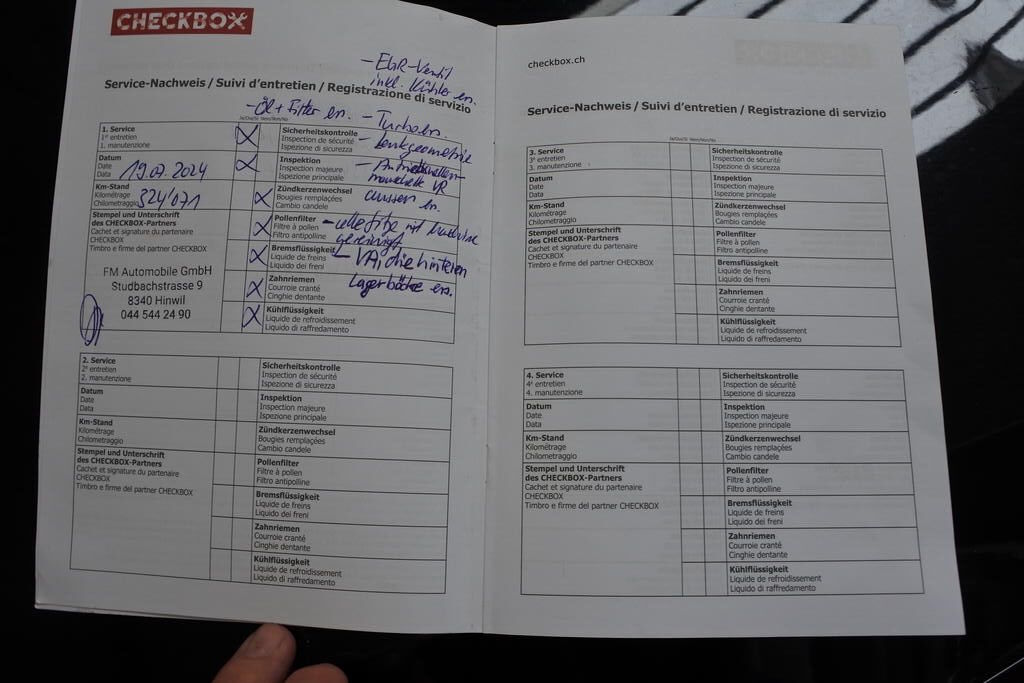 CHECKBOX
- EGR-Ventil
inkl. Kühler en.
Service-Nachweis / Suivi d'entretien / Registrazione di servizio
- Öl + Filter en. - Turbo en.
Ja/Oui/Si Nein/Non/No
1. Service
1e entretien
1. manutenzione
Sicherheitskontrolle
Inspection de sécurité
Ispezione di sicurezza
- Lenkgeometrie
Datum
Date
Data
19.07.2024
Inspektion
Inspection majeure
Ispezione principale
- Antriebswellen-
manschette VR
Km-Stand
Kilométrage
Chilometraggio
324'071
Zündkerzenwechsel
Bougies remplaçées
Cambio candele
aussen en.
Stempel und Unterschrift
des CHECKBOX-Partners
Cachet et signature du partenaire
CHECKBOX
Timbro e firme del partner CHECKBOX
FM Automobile GmbH
Studbachstrasse 9
8340 Hinwil
044 544 24 90
Pollenfilter
Filtre à pollen
Filtro antipolline
mit
gereinigt
Bremsflüssigkeit
Liquide de freins
Liquido dei freni
- VA, die hinteren
Lagerböcke en.
Zahnriemen
Courroie cranté
Cinghie dentante
Kühlflüssigkeit
Liquide de refroidissement
Liquido di raffredamento
2. Service
2e entretien
2. manutenzione
Sicherheitskontrolle
Inspection de sécurité
Ispezione di sicurezza
Datum
Date
Data
Inspektion
Inspection majeure
Ispezione principale
Km-Stand
Kilométrage
Chilometraggio
Zündkerzenwechsel
Bougies remplaçées
Cambio candele
Stempel und Unterschrift
des CHECKBOX-Partners
Cachet et signature du partenaire
CHECKBOX
Timbro e firme del partner CHECKBOX
Pollenfilter
Filtre à pollen
Filtro antipolline
Bremsflüssigkeit
Liquide de freins
Liquido dei freni
Zahnriemen
Courroie cranté
Cinghie dentante
Kühlflüssigkeit
Liquide de refroidissement
Liquido di raffredamento
checkbox.ch
Service-Nachweis / Suivi d'entretien / Registrazione di servizio
Ja/Oui/Si Nein/Non/No
3. Service
3e entretien
3. manutenzione
Sicherheitskontrolle
Inspection de sécurité
Ispezione di sicurezza
Datum
Date
Data
Inspektion
Inspection majeure
Ispezione principale
Km-Stand
Kilométrage
Chilometraggio
Zündkerzenwechsel
Bougies remplaçées
Cambio candele
Stempel und Unterschrift
des CHECKBOX-Partners
Cachet et signature du partenaire
CHECKBOX
Timbro e firme del partner CHECKBOX
Pollenfilter
Filtre à pollen
Filtro antipolline
Bremsflüssigkeit
Liquide de freins
Liquido dei freni
Zahnriemen
Courroie cranté
Cinghie dentante
Kühlflüssigkeit
Liquide de refroidissement
Liquido di raffredamento
4. Service
4e entretien
4. manutenzione
Sicherheitskontrolle
Inspection de sécurité
Ispezione di sicurezza
Datum
Date
Data
Inspektion
Inspection majeure
Ispezione principale
Km-Stand
Kilométrage
Chilometraggio
Zündkerzenwechsel
Bougies remplaçées
Cambio candele
Stempel und Unterschrift
des CHECKBOX-Partners
Cachet et signature du partenaire
CHECKBOX
Timbro e firme del partner CHECKBOX
Pollenfilter
Filtre à pollen
Filtro antipolline
Bremsflüssigkeit
Liquide de freins
Liquido dei freni
Zahnriemen
Courroie cranté
Cinghie dentante
Kühlflüssigkeit
Liquide de refroidissement
Liquido di raffredamento